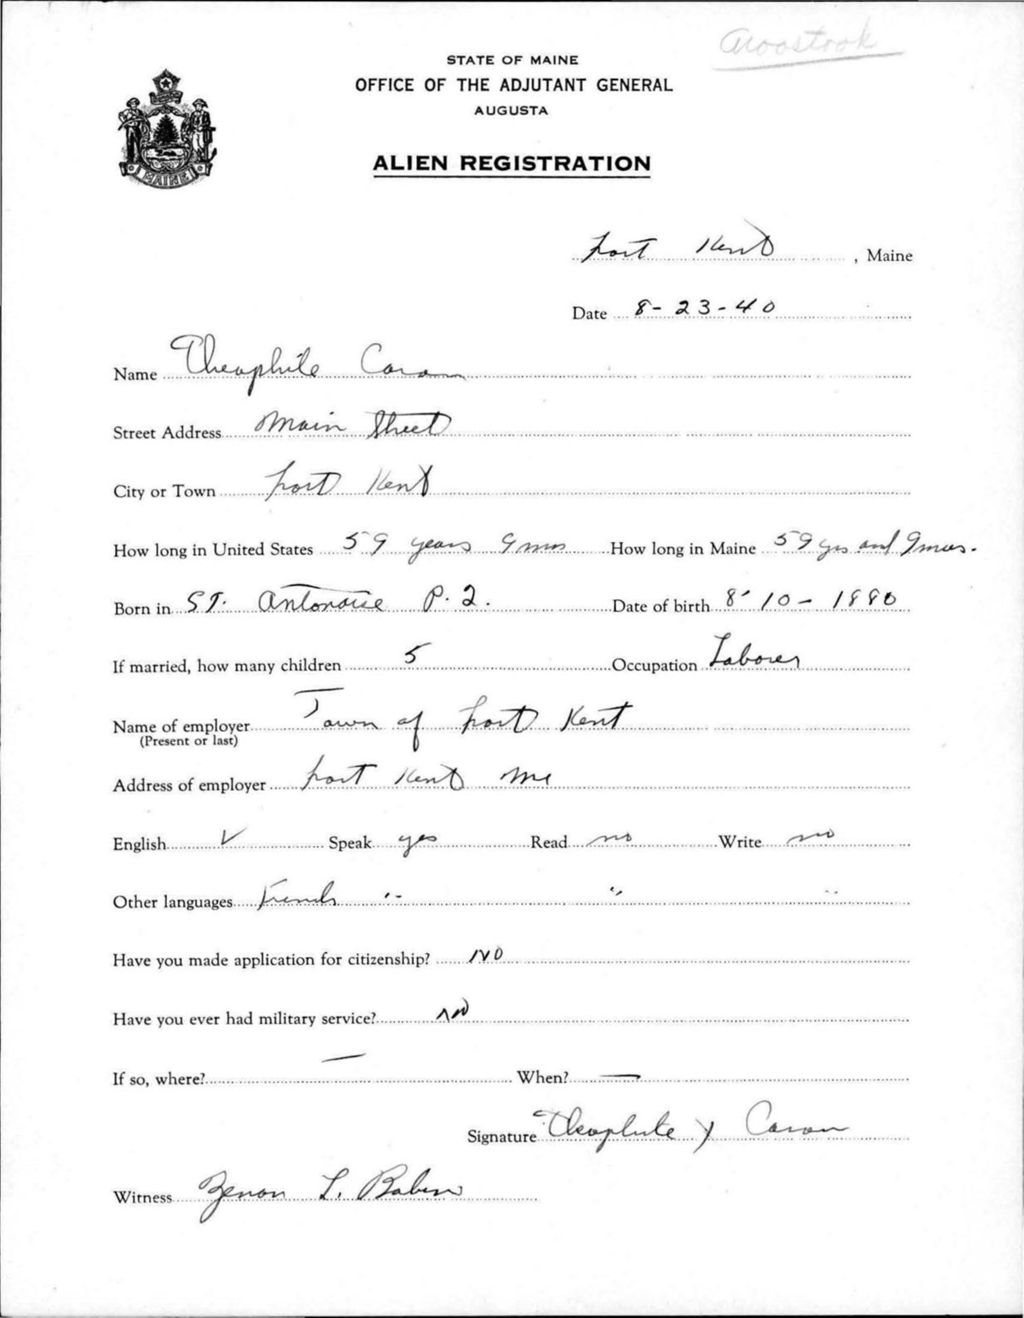 Aroostook
STATE OF MAINE
OFFICE OF THE ADJUTANT GENERAL
AUGUSTA
ALIEN REGISTRATION
Fort Kent, Maine
Date 8-23-40
Name Theophile Caron
Street Address Main Street
City or Town Fort Kent
How long in United States 59 years 9 mos How long in Maine 59 yrs and 9 mos.
Born in ST. Antonaise P. Q. Date of birth 8-10-1880
If married, how many children 5 Occupation Laborer
Name of employer Town of Fort Kent
(Present or last)
Address of employer Fort Kent Me
English V Speak yes Read no Write no
Other languages French " " "
Have you made application for citizenship? NO
Have you ever had military service? No
If so, where? — When? —
Signature Theophile X Caron
Witness Zenon L. Babin
MAINE